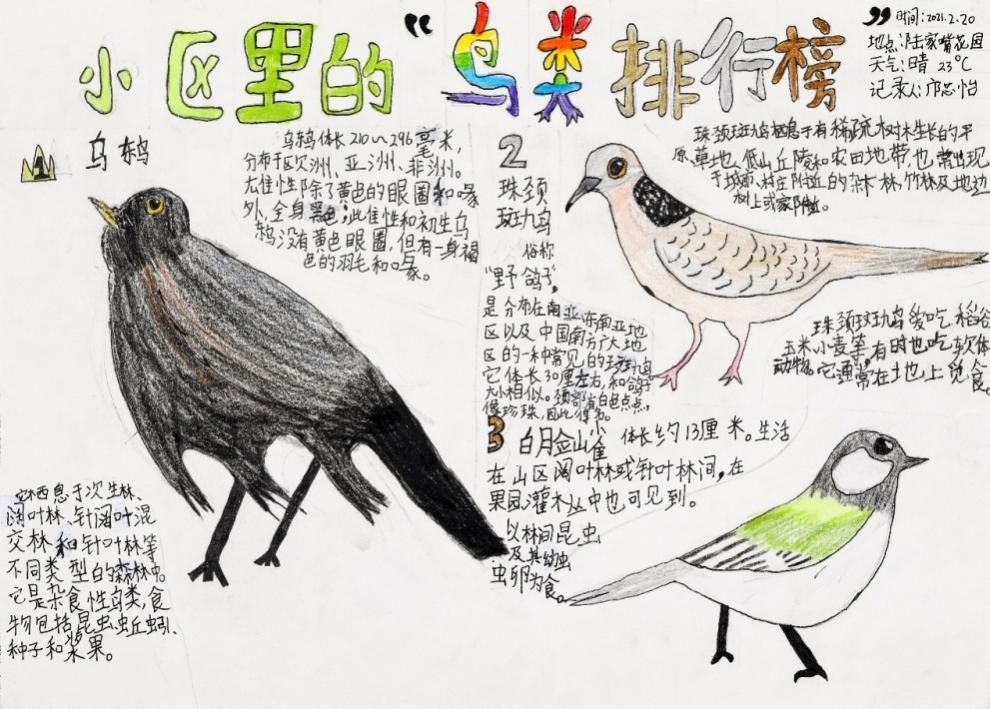 小区里的“鸟类排行榜”
时间:2021.2.20
地点:陆家嘴花园
天气:晴 23°C
记录人:邝芯怡
1 乌鸫
乌鸫体长210~296毫米,
分布于欧洲、亚洲、非洲。
尤雄性除了黄色的眼圈和喙
外,全身黑色;此雌性和初生乌
鸫没有黄色眼圈,但有一身褐
色的羽毛和喙。
它栖息于次生林、
阔叶林、针阔叶混
交林和针叶林等
不同类型的森林中。
它是杂食性鸟类,食
物包括昆虫、蚯蚓、
种子和浆果。
2
珠颈
斑鸠
俗称
“野鸽子”,
是分布在南亚、东南亚地
区以及中国南方广大地
区的一种常见的斑鸠。
它体长30厘左右,和鸽子
大小相似。颈部有白色点点,
像珍珠,因此得名。
珠颈斑鸠栖息于有稀疏树木生长的平
原、草地、低山丘陵和农田地带,也常出现
于城市、村庄附近的杂木林、竹林及地边
树上或家附近。
珠颈斑鸠爱吃稻谷
玉米小麦等,有时也吃软体
动物。它通常在地上觅食。
3 白月金山雀 体长约13厘米。生活
在山区阔叶林或针叶林间,在
果园、灌木丛中也可见到。
以林间昆虫
及其幼虫
虫卵为食。